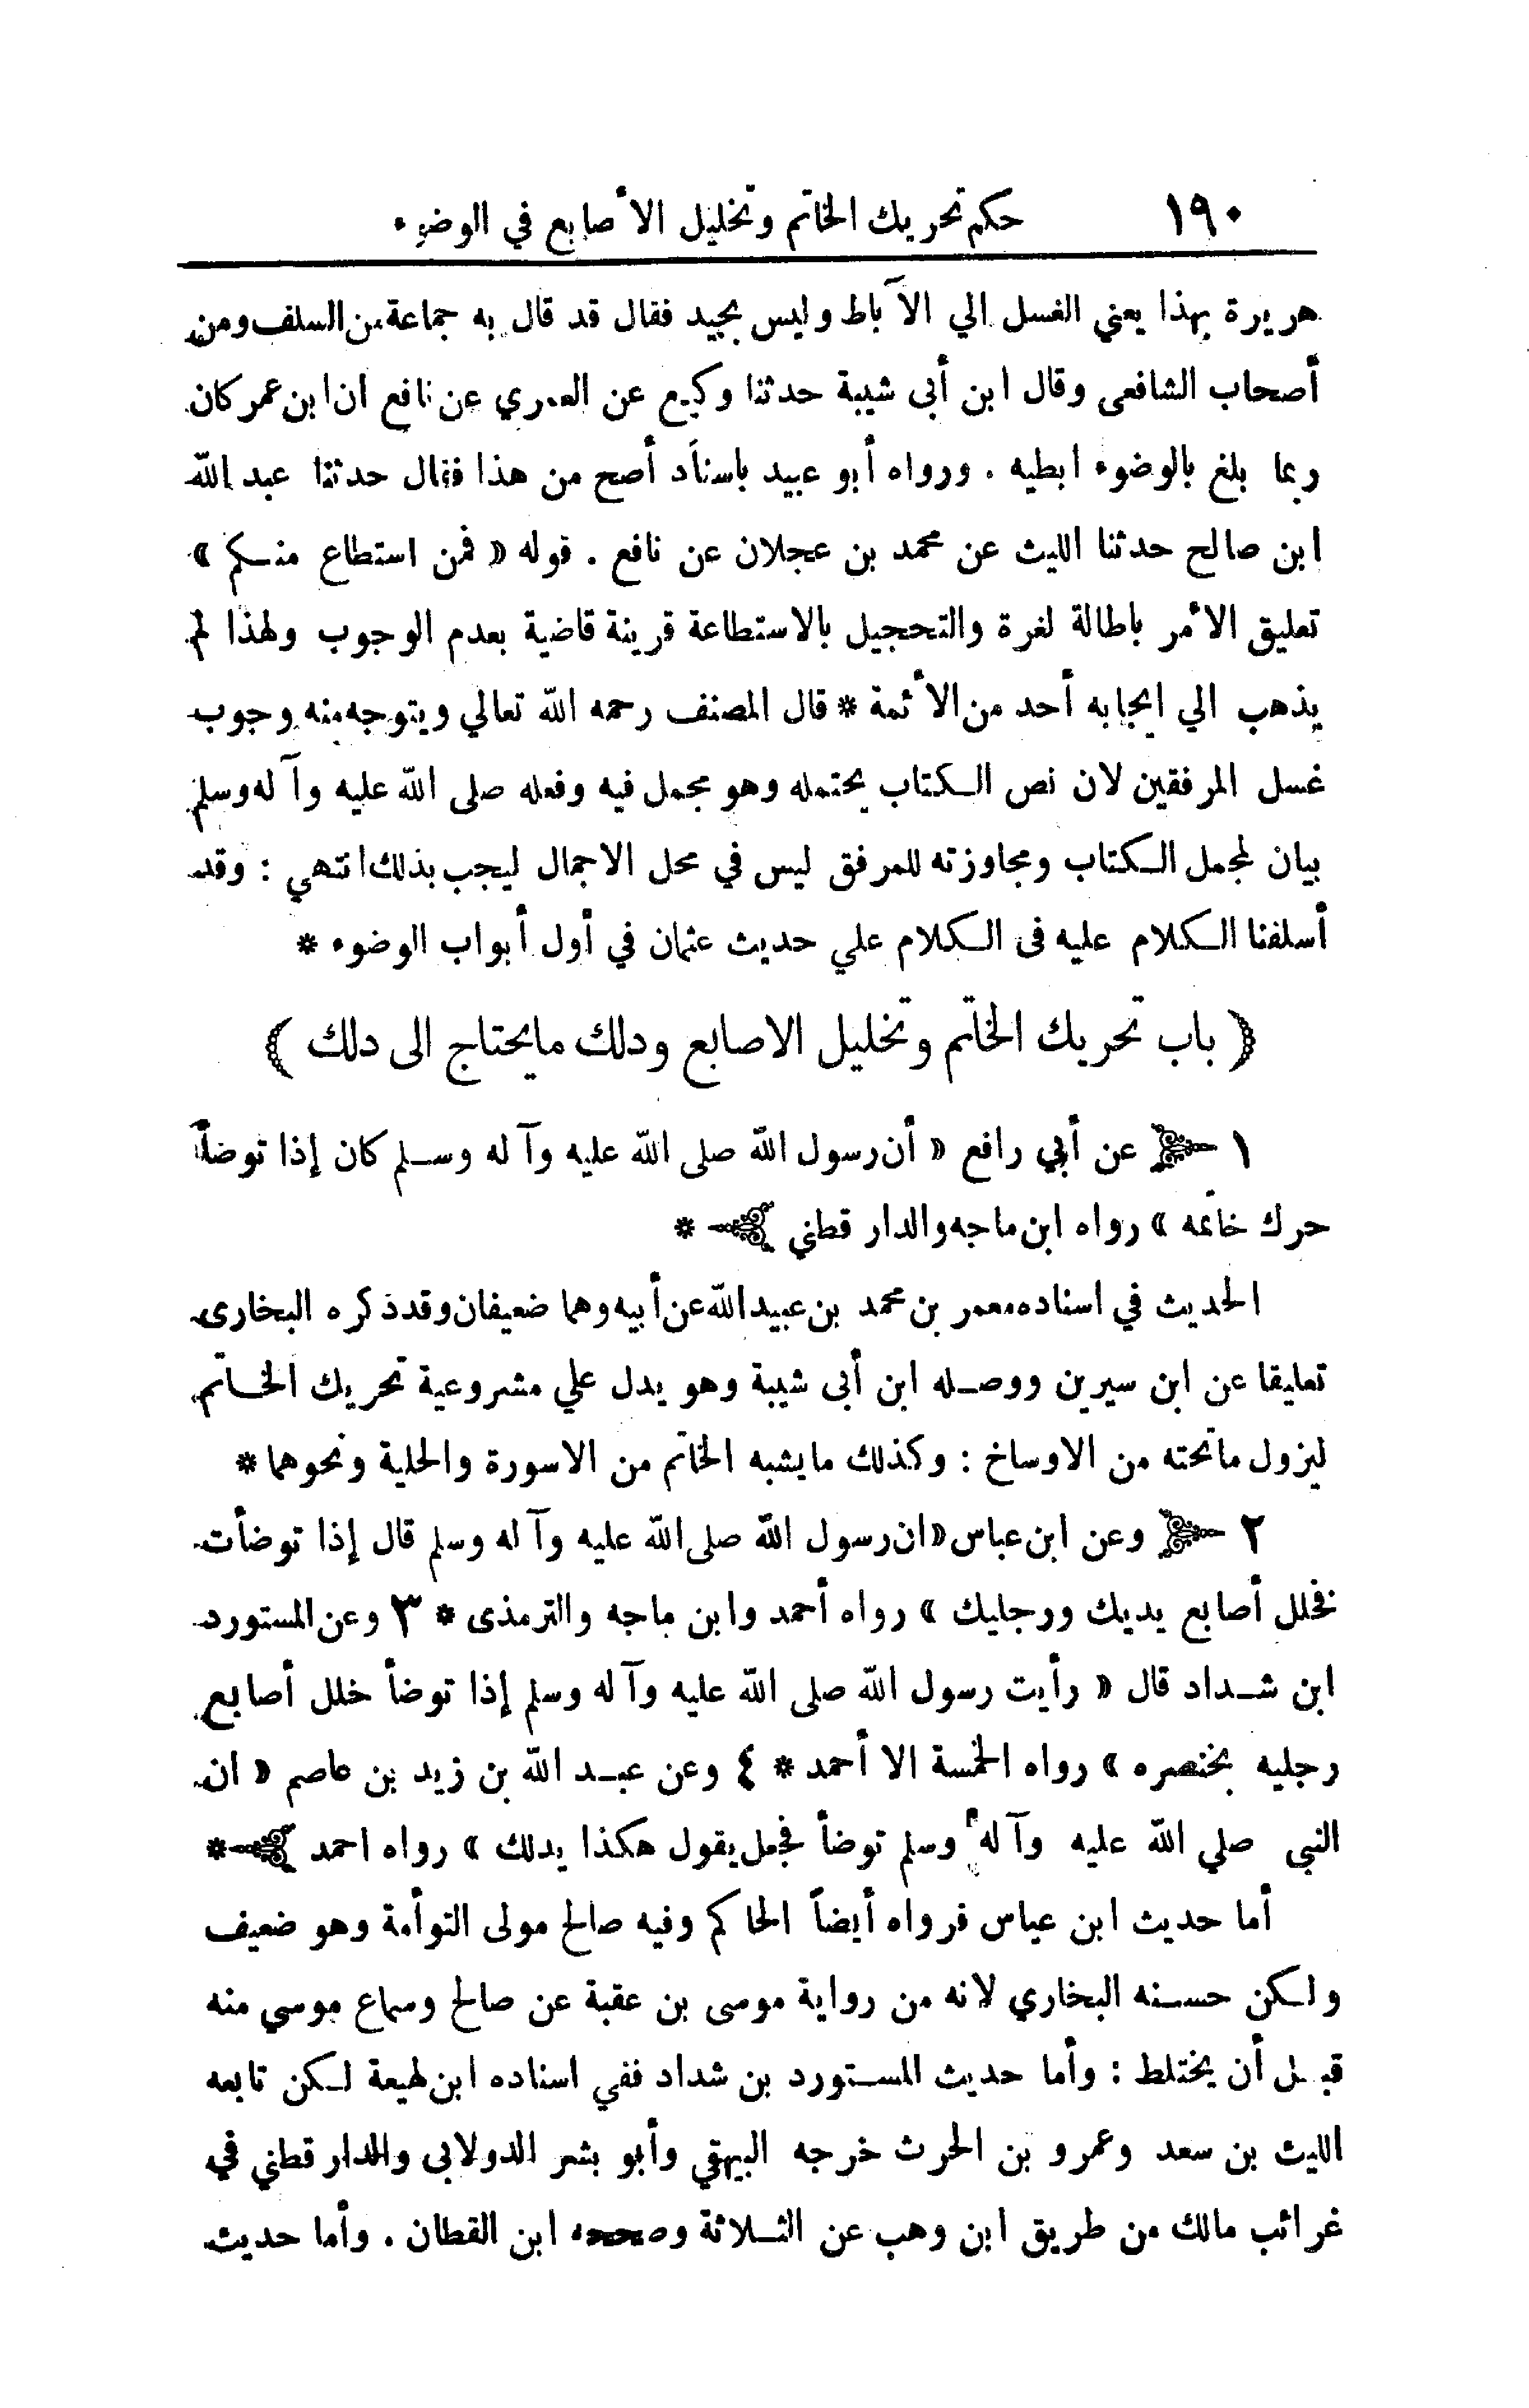 ١٩٠ حكم تحريك الخاتم وتخليل الأصابع في الوضوء
هريرة بهذا يعني الغسل الي الآباط وليس بجيد فقال قد قال به جماعة من السلف ومن
أصحاب الشافعى وقال ابن أبى شيبة حدثنا وكيع عن العمري عن نافع ان ابن عمر كان
ربما بلغ بالوضوء ابطيه . ورواه أبو عبيد باسناد أصح من هذا فقال حدثنا عبد الله
ابن صالح حدثنا الليث عن محمد بن عجلان عن نافع . قوله « فمن استطاع منكم »
تعليق الأمر باطالة لغرة والتحجيل بالاستطاعة قرينة قاضية بعدم الوجوب ولهذا لم
يذهب الي ايجابه أحد من الأئمة * قال المصنف رحمه الله تعالي ويتوجه منه وجوب
غسل المرفقين لان نص الكتاب يحتمله وهو مجمل فيه وفعله صلى الله عليه وآله وسلم
بيان لمجمل الكتاب ومجاوزته للمرفق ليس في محل الاجمال ليجب بذلك انتهي : وقد
أسلفنا الكلام عليه فى الكلام علي حديث عثمان في أول أبواب الوضوء *
﴿ باب تحريك الخاتم وتخليل الاصابع ودلك مايحتاج الى دلك ﴾
١ عن أبي رافع « أن رسول الله صلى الله عليه وآله وسلم كان إذا توضأ
حرك خاتمه » رواه ابن ماجه والدار قطني *
الحديث في اسناده معمر بن محمد بن عبيد الله عن أبيه وهما ضعيفان وقد ذكره البخارى
تعليقا عن ابن سيرين ووصله ابن أبى شيبة وهو يدل علي مشروعية تحريك الخاتم
ليزول ماتحته من الاوساخ : وكذلك مايشبه الخاتم من الاسورة والحلية ونحوهما *
٢ وعن ابن عباس « ان رسول الله صلى الله عليه وآله وسلم قال إذا توضأت
فخلل أصابع يديك ورجليك » رواه أحمد وابن ماجه والترمذى * ٣ وعن المستورد
ابن شداد قال « رأيت رسول الله صلى الله عليه وآله وسلم إذا توضأ خلل أصابع
رجليه بخنصره » رواه الخمسة الا أحمد * ٤ وعن عبد الله بن زيد بن عاصم « ان
النبى صلي الله عليه وآله وسلم توضأ فجعل يقول هكذا يدلك » رواه احمد *
أما حديث ابن عباس فرواه أيضاً الحاكم وفيه صالح مولى التوأمة وهو ضعيف
ولكن حسنه البخاري لانه من رواية موسى بن عقبة عن صالح وسماع موسي منه
قبل أن يختلط : وأما حديث المستورد بن شداد ففي اسناده ابن لهيعة لكن تابعه
الليث بن سعد وعمرو بن الحرث خرجه البيهقي وأبو بشر الدولابى والدار قطني في
غرائب مالك من طريق ابن وهب عن الثلاثة وصححه ابن القطان . وأما حديث